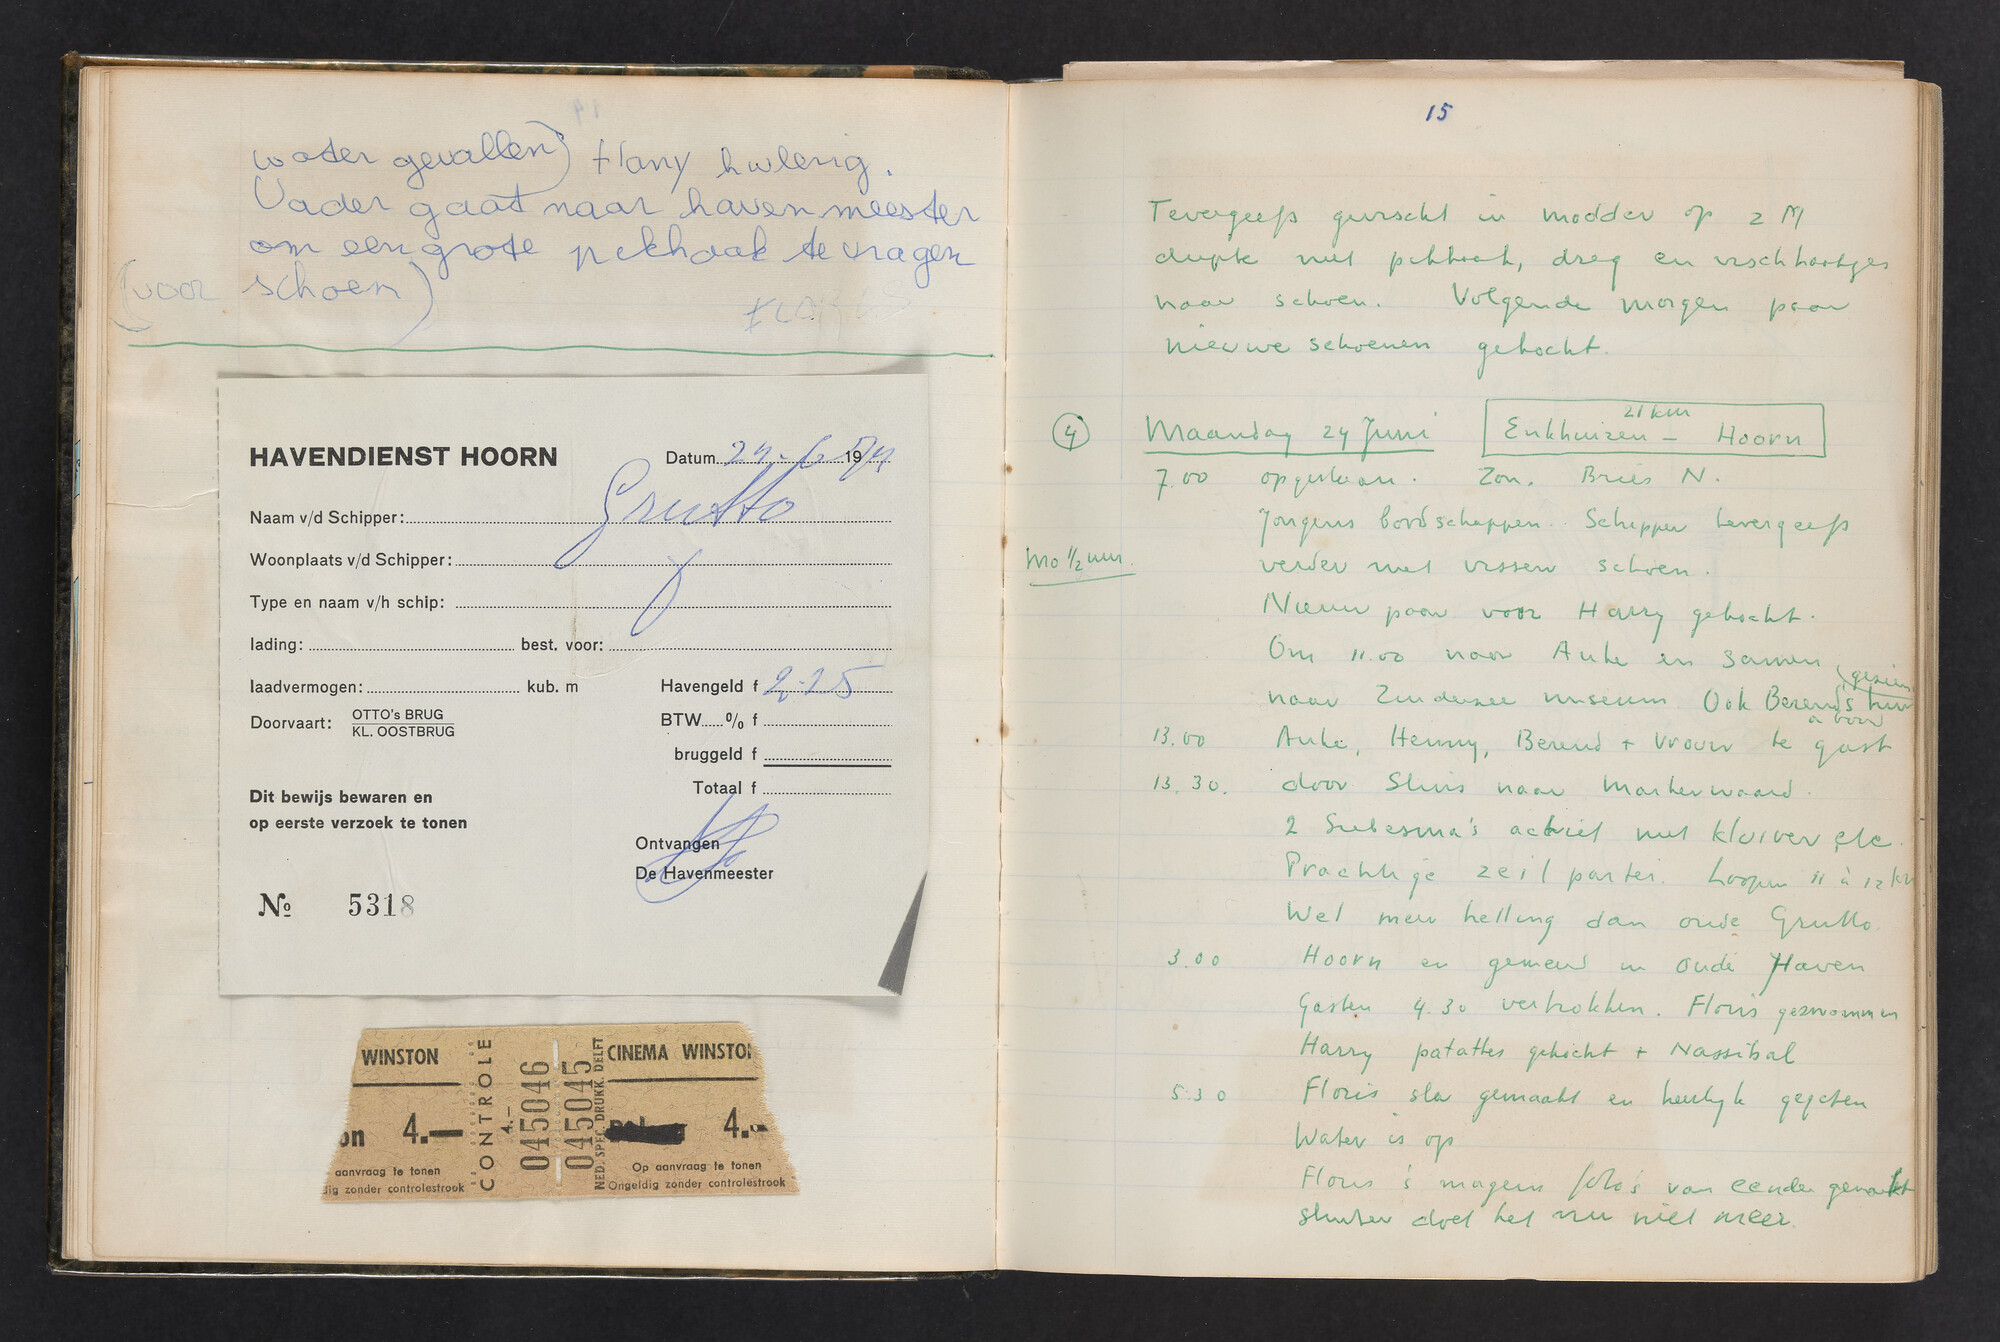 water gevallen) Harry huilerig.
Vader gaat naar havenmeester
om een grote pikhaak te vragen
(voor schoen)
HAVENDIENST HOORN
Datum 24-6 1974
Naam v/d Schipper: Grutto
Woonplaats v/d Schipper:
Type en naam v/h schip:
lading: best. voor:
laadvermogen: kub. m
Havengeld f 2-25
Doorvaart: OTTO's BRUG
KL. OOSTBRUG
BTW % f
bruggeld f
Totaal f
Dit bewijs bewaren en
op eerste verzoek te tonen
Ontvangen
De Havenmeester
No 5318
WINSTON
on 4.—
aanvraag te tonen
dig zonder controlestrook
CONTROLE
4.—
045046
045045
NED. SPEC. DRUKK. DELFT
CINEMA WINSTO
4.-
Op aanvraag te tonen
Ongeldig zonder controlestrook
15
Tevergeefs gevischt in modder op 2 M
diepte met pikhaak, dreg en vischhaakjes
naar schoen. Volgende morgen paar
nieuwe schoenen gekocht.
4 Maandag 24 Juni
21 km
Enkhuizen – Hoorn
7.00 opgestaan. Zon. Bries N.
Jongens boodschappen. Schipper tevergeefs
mo ½ uur. verder met vissen schoen.
Nieuw paar voor Harry gekocht.
Om 11.00 naar Anke en samen
naar Zuiderzee museum. Ook Berend's
gezien
13.00 Anke, Henny, Berend + vrouw te gast
a boord
13.30. door Sluis naar Markerwaard.
2 Siebesma's actief met kluiver etc.
Prachtige zeilpartij. Loopen 11 à 12 km
Wel meer helling dan oude Grutto.
3.00 Hoorn en gemeerd in oude Haven
Gasten 4.30 vertrokken. Floris gezwommen
Harry patattes gekocht + Nassibal
5.30 Floris sla gemaakt en heerlijk gegeten
Water is op
Floris 's morgens foto's van eenden gemaakt
sluiter doet het nu niet meer.